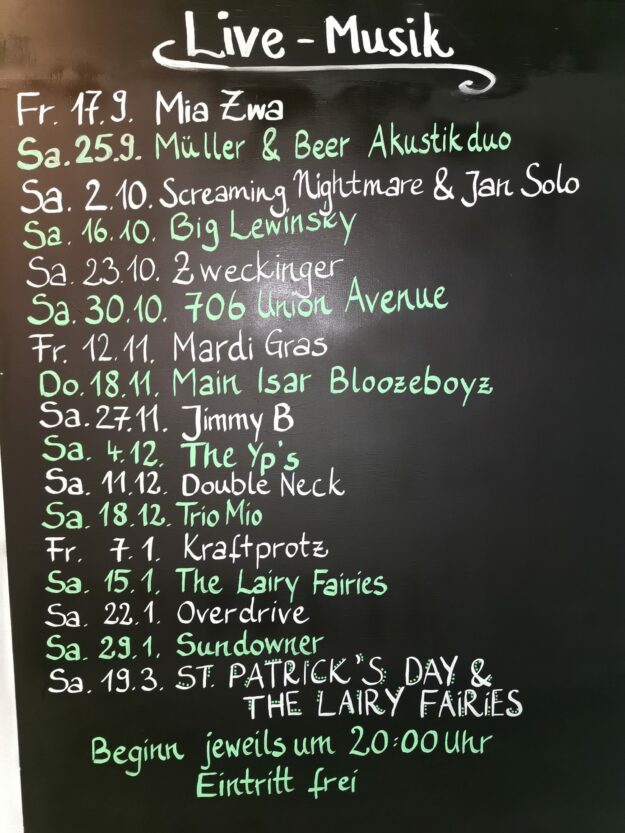 Live-Musik
Fr. 17.9. Mia Zwa
Sa. 25.9. Müller & Beer Akustikduo
Sa. 2.10. Screaming Nightmare & Jan Solo
Sa. 16.10. Big Lewinsky
Sa. 23.10. Zweckinger
Sa. 30.10. 706 Union Avenue
Fr. 12.11. Mardi Gras
Do. 18.11. Main Isar Bloozeboyz
Sa. 27.11. Jimmy B
Sa. 4.12. The Yp's
Sa. 11.12. Double Neck
Sa. 18.12. Trio Mio
Fr. 7.1. Kraftprotz
Sa. 15.1. The Lairy Fairies
Sa. 22.1. Overdrive
Sa. 29.1. Sundowner
Sa. 19.3. ST. PATRICK'S DAY &
THE LAIRY FAIRIES
Beginn jeweils um 20:00 Uhr
Eintritt frei